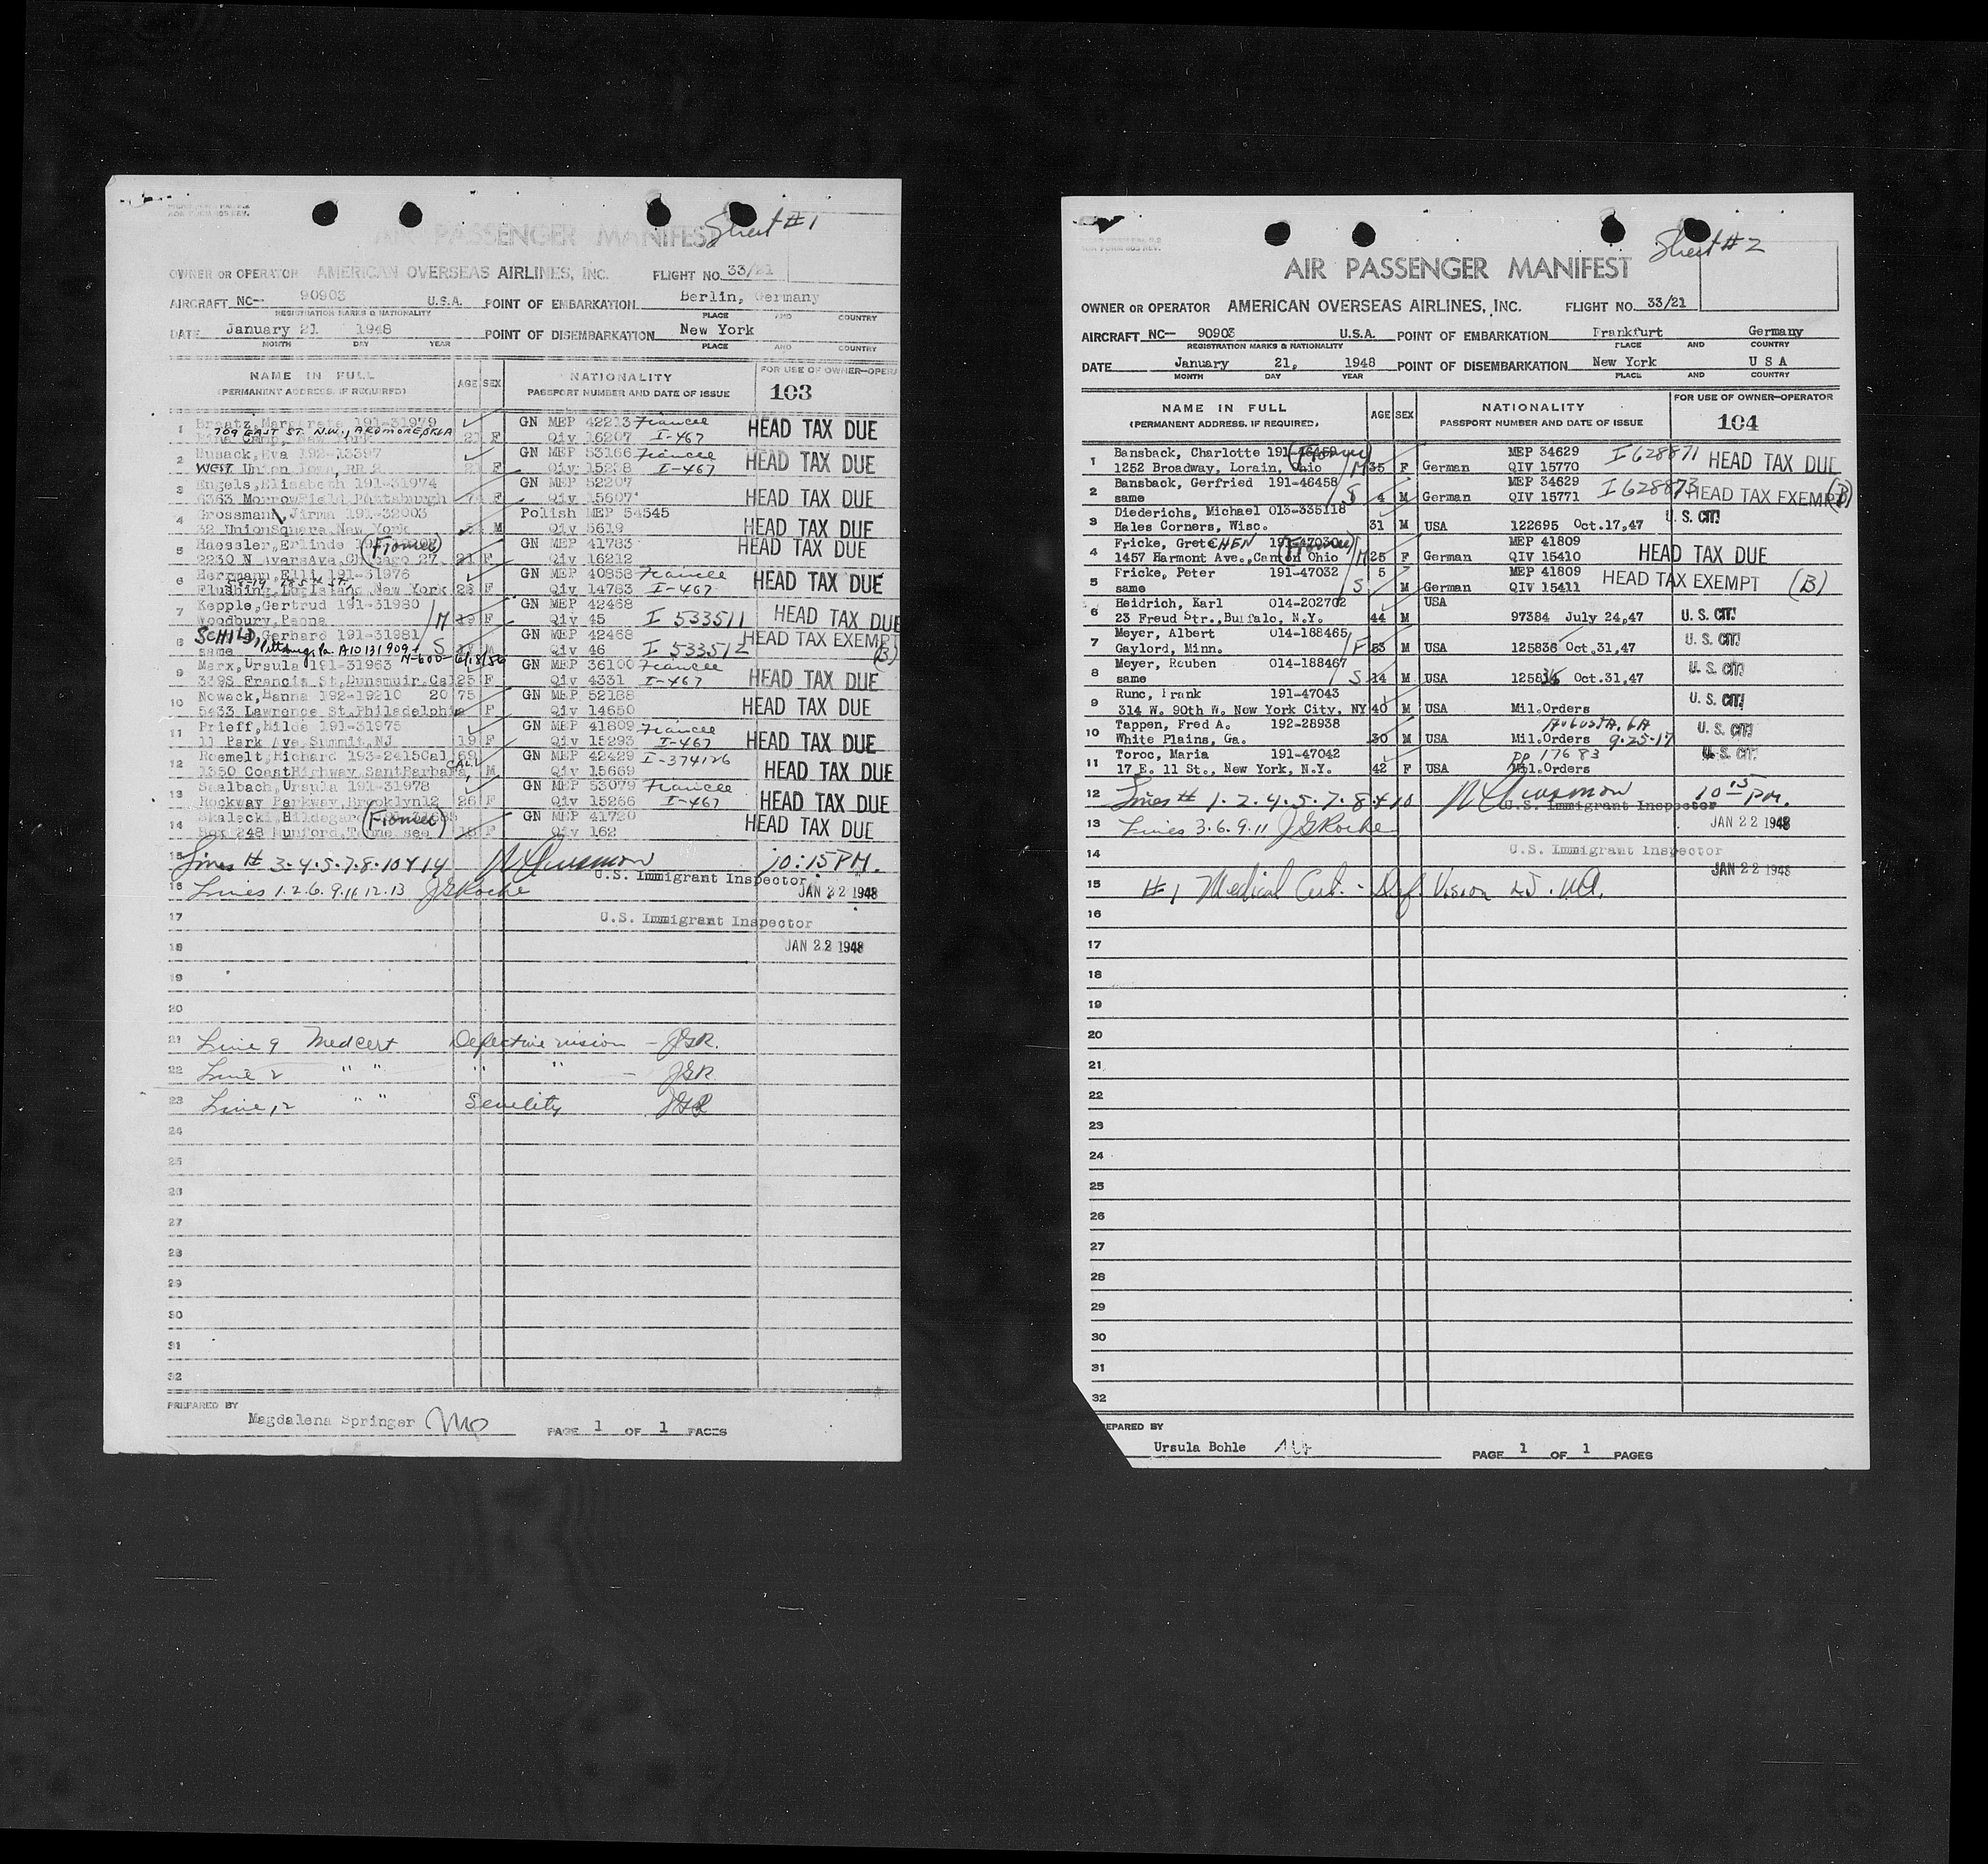 Sheet #1
AIR PASSENGER MANIFEST
OWNER OR OPERATOR AMERICAN OVERSEAS AIRLINES, INC. FLIGHT NO. 33/21
AIRCRAFT NC- 90903 U.S.A. POINT OF EMBARKATION Berlin, Germany
REGISTRATION MARKS & NATIONALITY PLACE AND COUNTRY
DATE January 21 1948 POINT OF DISEMBARKATION New York
MONTH DAY YEAR PLACE AND COUNTRY
NAME IN FULL AGE SEX NATIONALITY FOR USE OF OWNER-OPERA
(PERMANENT ADDRESS, IF REQUIRED) PASSPORT NUMBER AND DATE OF ISSUE 103
1 Braatz, 191-31979 GN MEP 42213 Fiancee HEAD TAX DUE
709 EAST ST. N.W., ARDMORE, OKLA
Camp, New York 21 F Qiv 16207 I-467
2 Busack, Eva 192-13397 GN MEP 53166 Fiancee HEAD TAX DUE
WEST Union Iowa, RR 2 21 F Qiv 15238 I-467
3 Engels, Elisabeth 191-31974 GN MEP 52207
6363 MorrowField Pittsburgh F Qiv 15607 HEAD TAX DUE
4 Grossman, Jirma 191-32003 Polish MEP 54545
32 UnionSquare, New York M Qiv 5619 HEAD TAX DUE
5 Haessler, Erlinde (Fiancee) GN MEP 41783 HEAD TAX DUE
2230 N AversAve, Chicago 27 21 F Qiv 16212
6 Herrmann, Elli 191-31976 GN MEP 40858 Fiancee HEAD TAX DUE
58-19 185th ST.
Flushing, LogIsland, New York 28 F Qiv 14783 I-467
7 Kepple, Gertrud 191-31980 GN MEP 42468 HEAD TAX DUE
Woodbury, Penna / M 19 F Qiv 45 I 533511
8 SCHILD, Gerhard 191-31981 GN MEP 42468 HEAD TAX EXEMPT
same Pittsburgh, Pa. A10131909+ S M Qiv 46 I 533512 (B)
N-600-6/18/56
9 Marx, Ursula 191-31963 GN MEP 36100 Fiancee
339S Francis St, Dunsmuir, Cal 25 F Qiv 4331 I-467 HEAD TAX DUE
10 Nowack, Hanna 192-19210 20 75 GN MEP 52188
5433 Lawrence St, Philadelphia F Qiv 14650 HEAD TAX DUE
11 Prieff, Hilde 191-31975 GN MEP 41809 Fiancee
11 Park Ave, Summit, NJ 19 F Qiv 15293 I-467 HEAD TAX DUE
12 Roemelt, Richard 193-2415 Cal 69 GN MEP 42429 I-374126
1350 CoastHighway, SantBarbara, CAL. M Qiv 15669 HEAD TAX DUE
13 Saalbach, Ursula 191-31978 GN MEP 53079 Fiancee
Rockway Parkway, Brooklyn12 26 F Qiv 15266 I-467 HEAD TAX DUE
14 Skalecki, Hildegard (Fiancee) GN MEP 41720
Box 248 Munford, Tennessee 18 F Qiv 162 HEAD TAX DUE
15 Lines # 3-4-5-7-8-10 & 14 10:15 PM.
U.S. Immigrant Inspector
16 Lines 1.2.6.9.11.12.13 JGRoche JAN 22 1948
17 U.S. Immigrant Inspector
18 JAN 22 1948
19
20
21 Line 9 Medcert Defective vision - JGR.
22 Line 2 " " " " - JGR
23 Line 12 " " Senility JGR
24
25
26
27
28
29
30
31
32
PREPARED BY
Magdalena Springer PAGE 1 OF 1 PAGES
Sheet #2
AIR PASSENGER MANIFEST
OWNER OR OPERATOR AMERICAN OVERSEAS AIRLINES, INC. FLIGHT NO. 33/21
AIRCRAFT NC- 90903 U.S.A. POINT OF EMBARKATION Frankfurt Germany
REGISTRATION MARKS & NATIONALITY PLACE AND COUNTRY
DATE January 21, 1948 POINT OF DISEMBARKATION New York U S A
MONTH DAY YEAR PLACE AND COUNTRY
NAME IN FULL AGE SEX NATIONALITY FOR USE OF OWNER-OPERATOR
(PERMANENT ADDRESS, IF REQUIRED) PASSPORT NUMBER AND DATE OF ISSUE 104
1 Bansback, Charlotte 191- (Fiancee) MEP 34629 I628871 HEAD TAX DUE
1252 Broadway, Lorain, Ohio /M 35 F German QIV 15770
2 Bansback, Gerfried 191-46458 MEP 34629 I628873 HEAD TAX EXEMPT (B)
same /S 4 M German QIV 15771
3 Diederichs, Michael 013-335118 U. S. CIT!
Hales Corners, Wisc. 31 M USA 122695 Oct.17,47
4 Fricke, GretCHEN 191-47030 (Fiancee) MEP 41809 HEAD TAX DUE
1457 Harmont Ave., Canton Ohio /M 25 F German QIV 15410
5 Fricke, Peter 191-47032 5 MEP 41809 HEAD TAX EXEMPT (B)
same /S M German QIV 15411
6 Heidrich, Karl 014-202702 USA
23 Freud Str., Buffalo, N.Y. 44 M 97384 July 24,47 U. S. CIT!
7 Meyer, Albert 014-188465 U. S. CIT!
Gaylord, Minn. /F 53 M USA 125836 Oct.31,47
8 Meyer, Reuben 014-188467 U. S. CIT!
same /S 14 M USA 125836 Oct.31,47
9 Runc, Frank 191-47043 U. S. CIT!
314 W. 90th W. New York City, NY 40 M USA Mil.Orders
10 Tappen, Fred A. 192-28938 AUGUSTA, GA U. S. CIT!
White Plains, Ga. 30 M USA Mil.Orders 9-25-17
11 Toroc, Maria 191-47042 PP 17683 U. S. CIT!
17 E. 11 St., New York, N.Y. 42 F USA Mil.Orders
12 Lines # 1.2.4.5.7.8.&10 10 15 PM.
U.S. Immigrant Inspector
13 Lines 3.6.9.11 JGRoche JAN 22 1948
14 U.S. Immigrant Inspector
JAN 22 1948
15 #1 Medical Cert. - Def. Vision
16
17
18
19
20
21
22
23
24
25
26
27
28
29
30
31
32
EPARED BY
Ursula Bohle PAGE 1 OF 1 PAGES